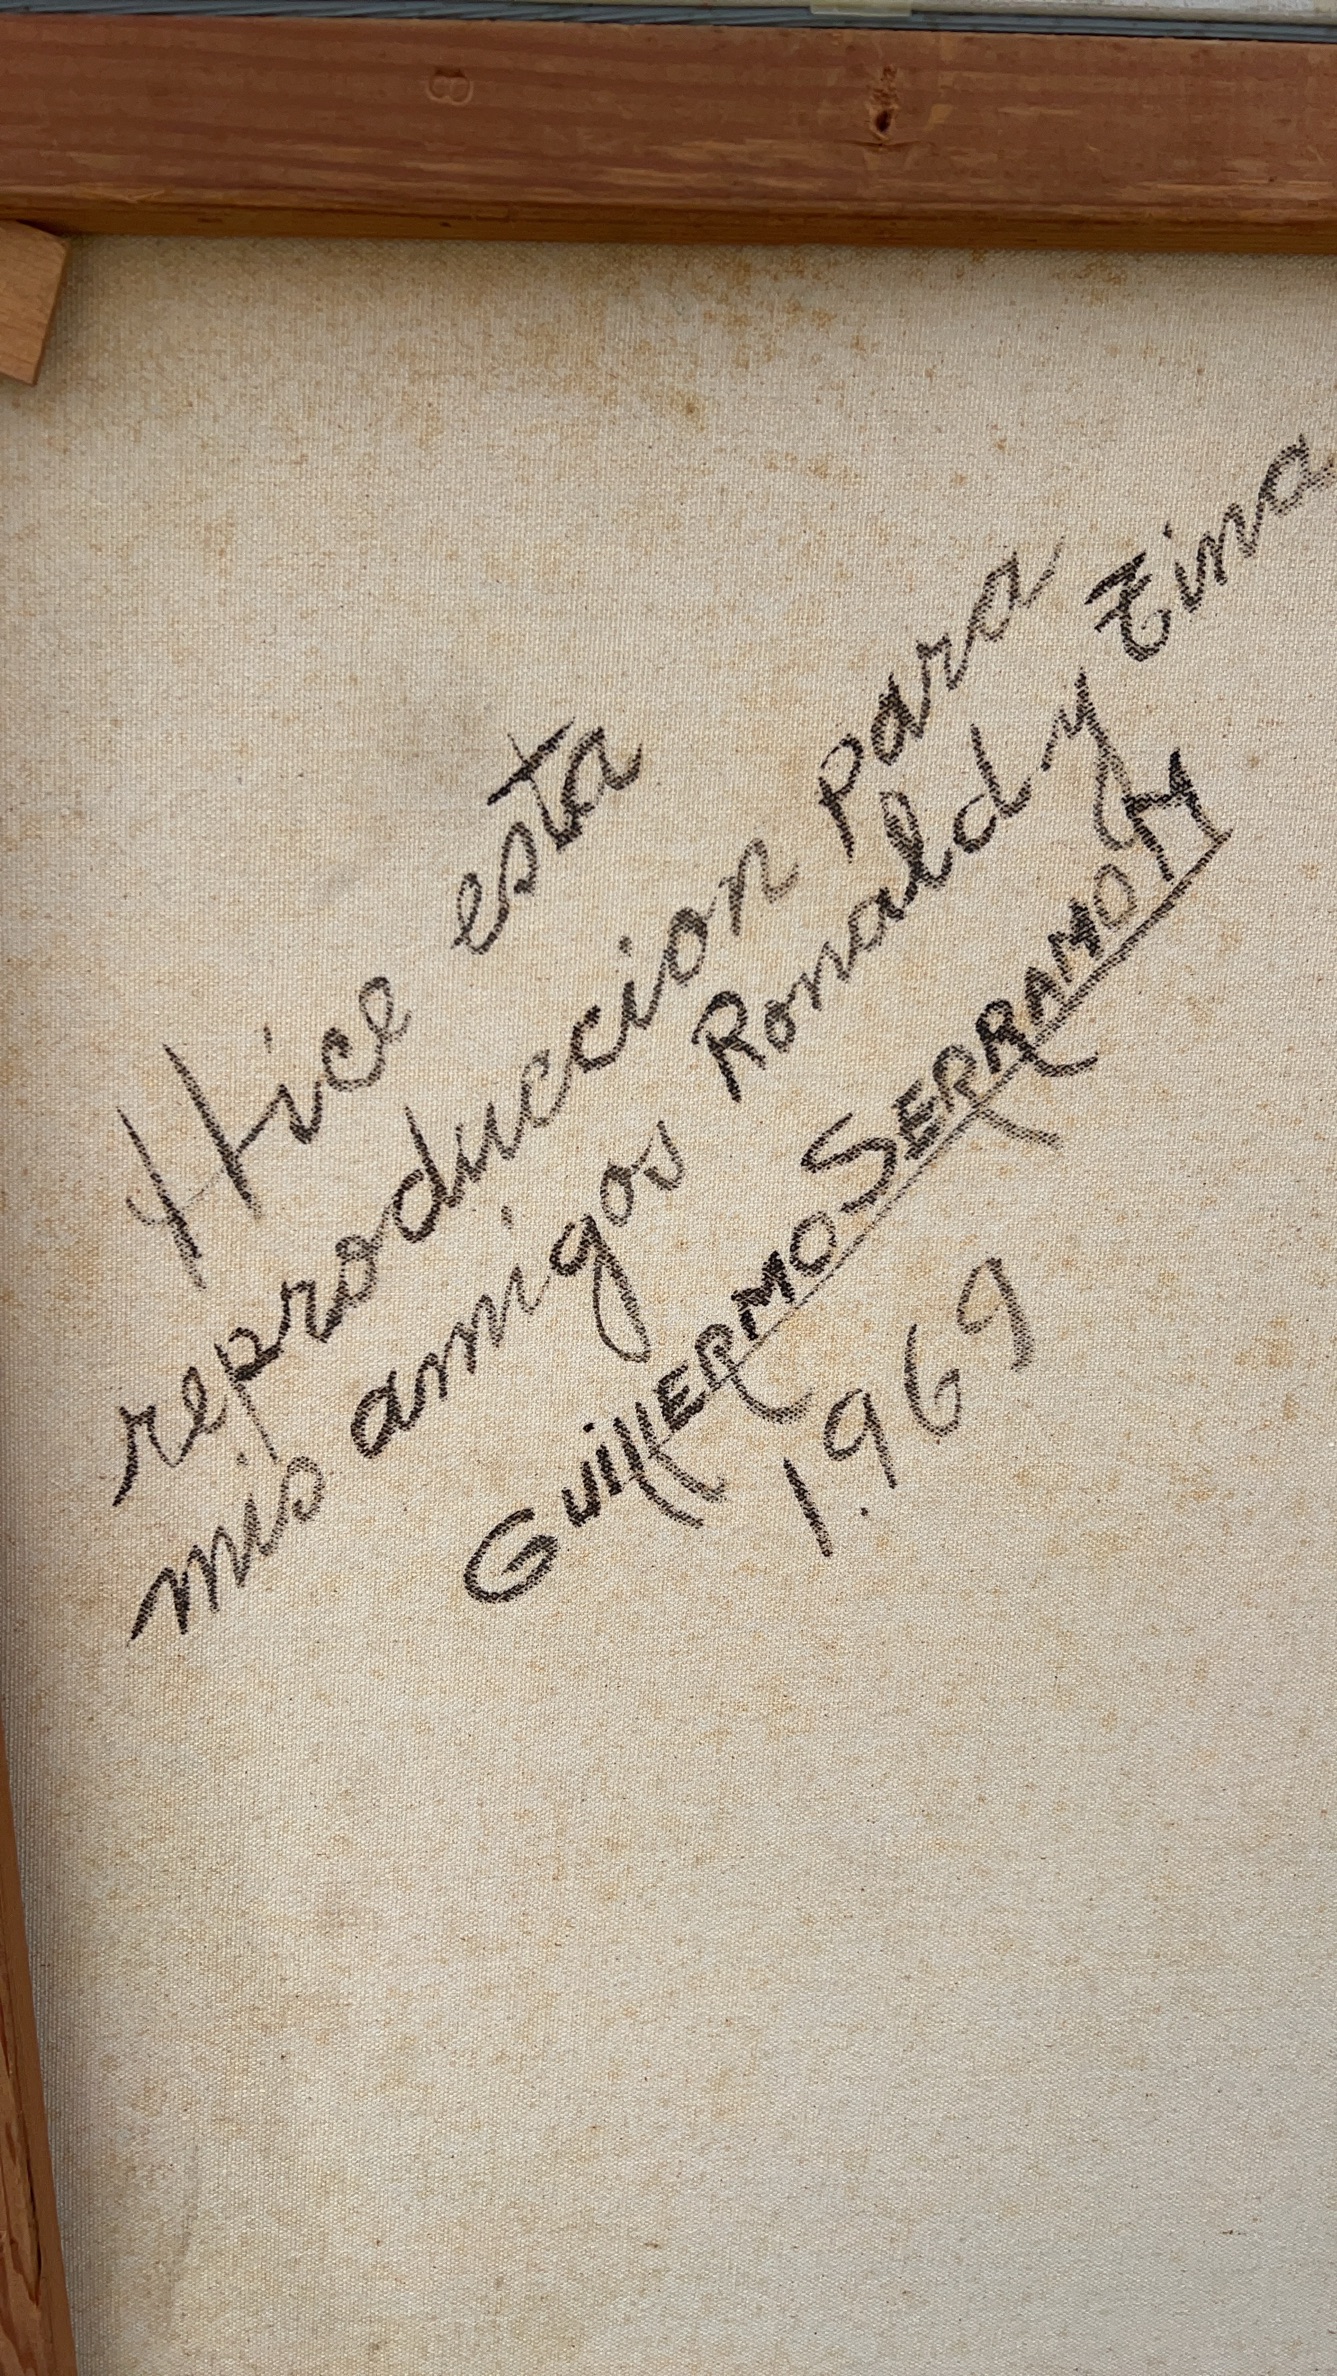 8
Hice esta
reproduccion para
mis amigos Ronald y Zina
GUILLERMO SERRANO H
1.969